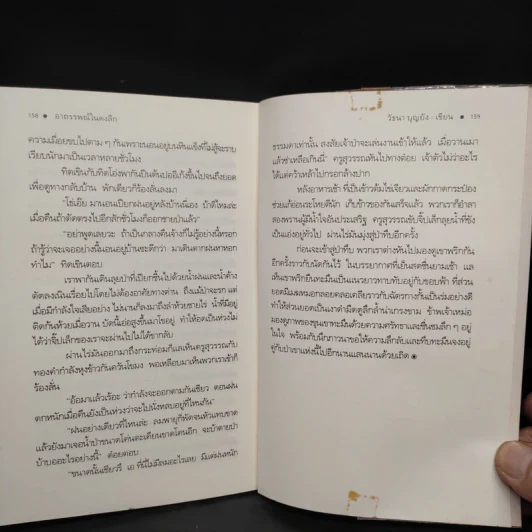 158 ● อาถรรพณ์ในดงลึก
ความเมื่อยขบไปตาม ๆ กันเพราะนอนอยู่บนหินแข็งที่ไม่สู้จะราบ
เรียบนักมาเป็นเวลาหลายชั่วโมง
ทิดเขินกับทิดโฉ่งพากันปีนต้นบ่ออีเก้งขึ้นไปจนถึงยอด
เพื่อดูทางกลับบ้าน พักเดียวก็ร้องลั่นลงมา
"โธ่เอ๊ย มานอนเปียกฝนอยู่หลังบ้านนี่เอง บ้าดีไหมล่ะ
เมื่อคืนถ้าตัดตรงไปอีกสักชั่วโมงก็ออกชายป่าแล้ว"
"อย่าพูดเลยวะ ถ้าเป็นกลางคืนจ้างก็ไม่รู้อย่างนี้หรอก
ถ้ารู้ว่าจะเจออย่างนี้นอนอยู่บ้านซะดีกว่า มาเดินตากฝนหาหอก
ทำไม" ทิดเขินตอบ
เราพากันเดินลุยป่าที่เปียกชื้นไปด้วยน้ำฝนและน้ำค้าง
ตัดลงเนินเรื่อยไปโดยไม่ต้องอาศัยทางด่าน ถึงแม้ป่าจะรก แต่
เมื่อมีกำลังใจเสียอย่าง ไม่นานก็ลงมาถึงลำห้วยชายไร่ น้ำที่มีอยู่
ติดก้นห้วยเมื่อวาน บัดนี้เอ่อสูงขึ้นมาโขอยู่ ทำให้อดเป็นห่วงไม่
ได้ว่าจี๊ปเล็กของเราจะผ่านไปไม่ได้ขากลับ
ผ่านไร่มันออกมาถึงกระท่อมก็แลเห็นครูสุวรรณกับ
ทองคำกำลังหุงข้าวควันโขมง พอเหลือบมาเห็นพวกเราเข้าก็
ร้องลั่น
"อ้อมาแล้วเร้อะ ว่ากำลังจะออกตามกันเชียว ตอนฝน
ตกหนักเมื่อคืนยังเป็นห่วงว่าจะไปนั่งหลบอยู่ที่ไหนกัน"
"ฝนอย่างเดียวที่ไหนล่ะ ลมพายุก็พัดจนหัวแทบขาด
แล้วยังมาเจอน้ำป่าขนาดโค่นตะเคียนขาดโคนอีก จะบ้าตายป่า
บ้าบออะไรอย่างนี้" ต๋อยตอบ
"ขนาดนั้นเชียวรึ เอ ที่นี่ไม่มีลมอะไรเลย มีแต่ฝนหนัก
วัธนา บุญยัง : เขียน ● 159
ธรรมดาเท่านั้น สงสัยเจ้าป่าจะเล่นงานเข้าให้แล้ว เมื่อวานเมา
แล้วซ่าเหลือเกินนี่" ครูสุวรรณเห็นไปทางต๋อย เจ้าตัวไม่ว่าอะไร
ได้แต่คว้าเหล้าไปกรอกล้างปาก
หลังอาหารเช้า ที่เป็นข้าวต้มไข่เจียวและผักกาดกระป๋อง
ช่วยแก้อ่อนระโหยดีนัก เก็บข้าวของกันเสร็จแล้ว พวกเราก็อำลา
สองพรานผู้มีน้ำใจอันประเสริฐ ครูสุวรรณขับจี๊ปเล็กลุยน้ำที่ขัง
เป็นแอ่งอยู่ทั่วไป ผ่านไร่มันมุ่งสู่ป่าทึบอีกครั้ง
ก่อนจะเข้าสู่ป่าทึบ พวกเราต่างหันไปมองดูเขาพริกกัน
อีกครั้งราวกับนัดกันไว้ ในบรรยากาศที่เย็นสดชื่นยามเช้า แล
เห็นเขาพริกยืนทะมึนเป็นแนวยาวทาบทับอยู่กับขอบฟ้า ที่ส่วน
ยอดมีเมฆหมอกลอยคลอเคลียราวกับฉัตรกางกั้นเป็นร่มอย่างดี
ทำให้ส่วนยอดเป็นเงาดำมืดดูลึกล้ำน่าเกรงขาม ข้าพเจ้าเหม่อ
มองดูภาพของขุนเขาทะมึนด้วยความศรัทธาและชื่นชมลึก ๆ อยู่
ในใจ พร้อมกับนึกภาวนาขอให้ความลึกลับและที่บทะมึนจงอยู่
คู่กับป่าเขาแห่งนี้ไปอีกนานแสนนานด้วยเถิด ◉